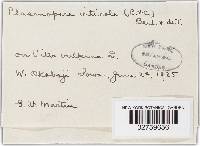 Plasmopara viticola (B.&C.)
Berl. & de T.
on Vitis vulpina L.
W. Okoboji Iowa, June 22, 1925
G. W. Martin
NEW YORK BOTANICAL GARDEN
02759656